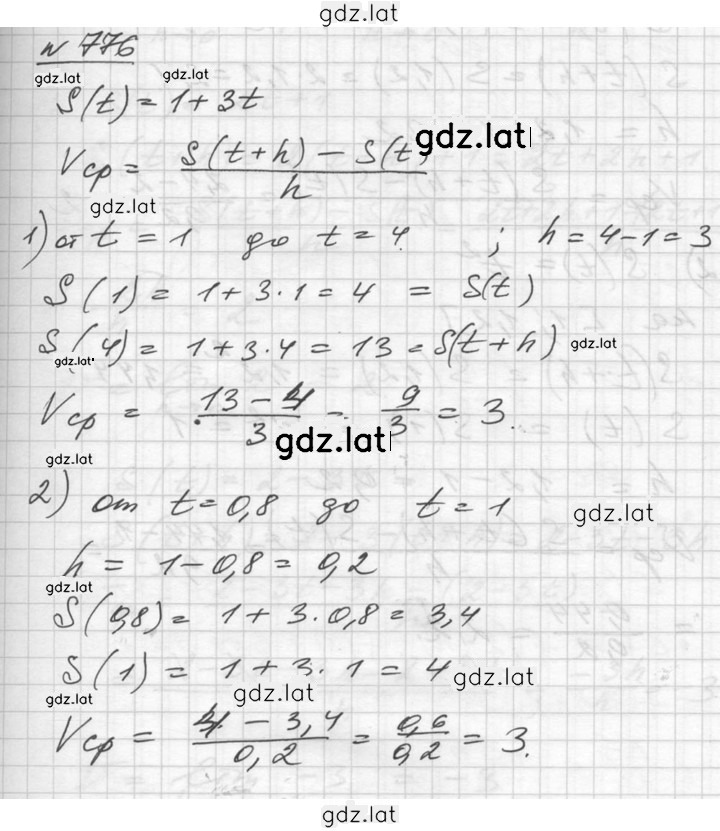 gdz.lat
№ 776
gdz.lat gdz.lat
S(t) = 1 + 3t
gdz.lat
Vср = (S(t+h) − S(t)) / h
gdz.lat
1) от t = 1 до t = 4 ; h = 4−1 = 3
S(1) = 1 + 3·1 = 4 = S(t)
S(4) = 1 + 3·4 = 13 = S(t+h) gdz.lat
gdz.lat
Vср = (13 − 4) / 3 = 9/3 = 3.
gdz.lat
gdz.lat
2) от t = 0,8 до t = 1
gdz.lat
h = 1−0,8 = 0,2
gdz.lat
S(0,8) = 1 + 3·0,8 = 3,4
S(1) = 1 + 3·1 = 4 gdz.lat
gdz.lat gdz.lat
Vср = (4 − 3,4) / 0,2 = 0,6/0,2 = 3.
gdz.lat